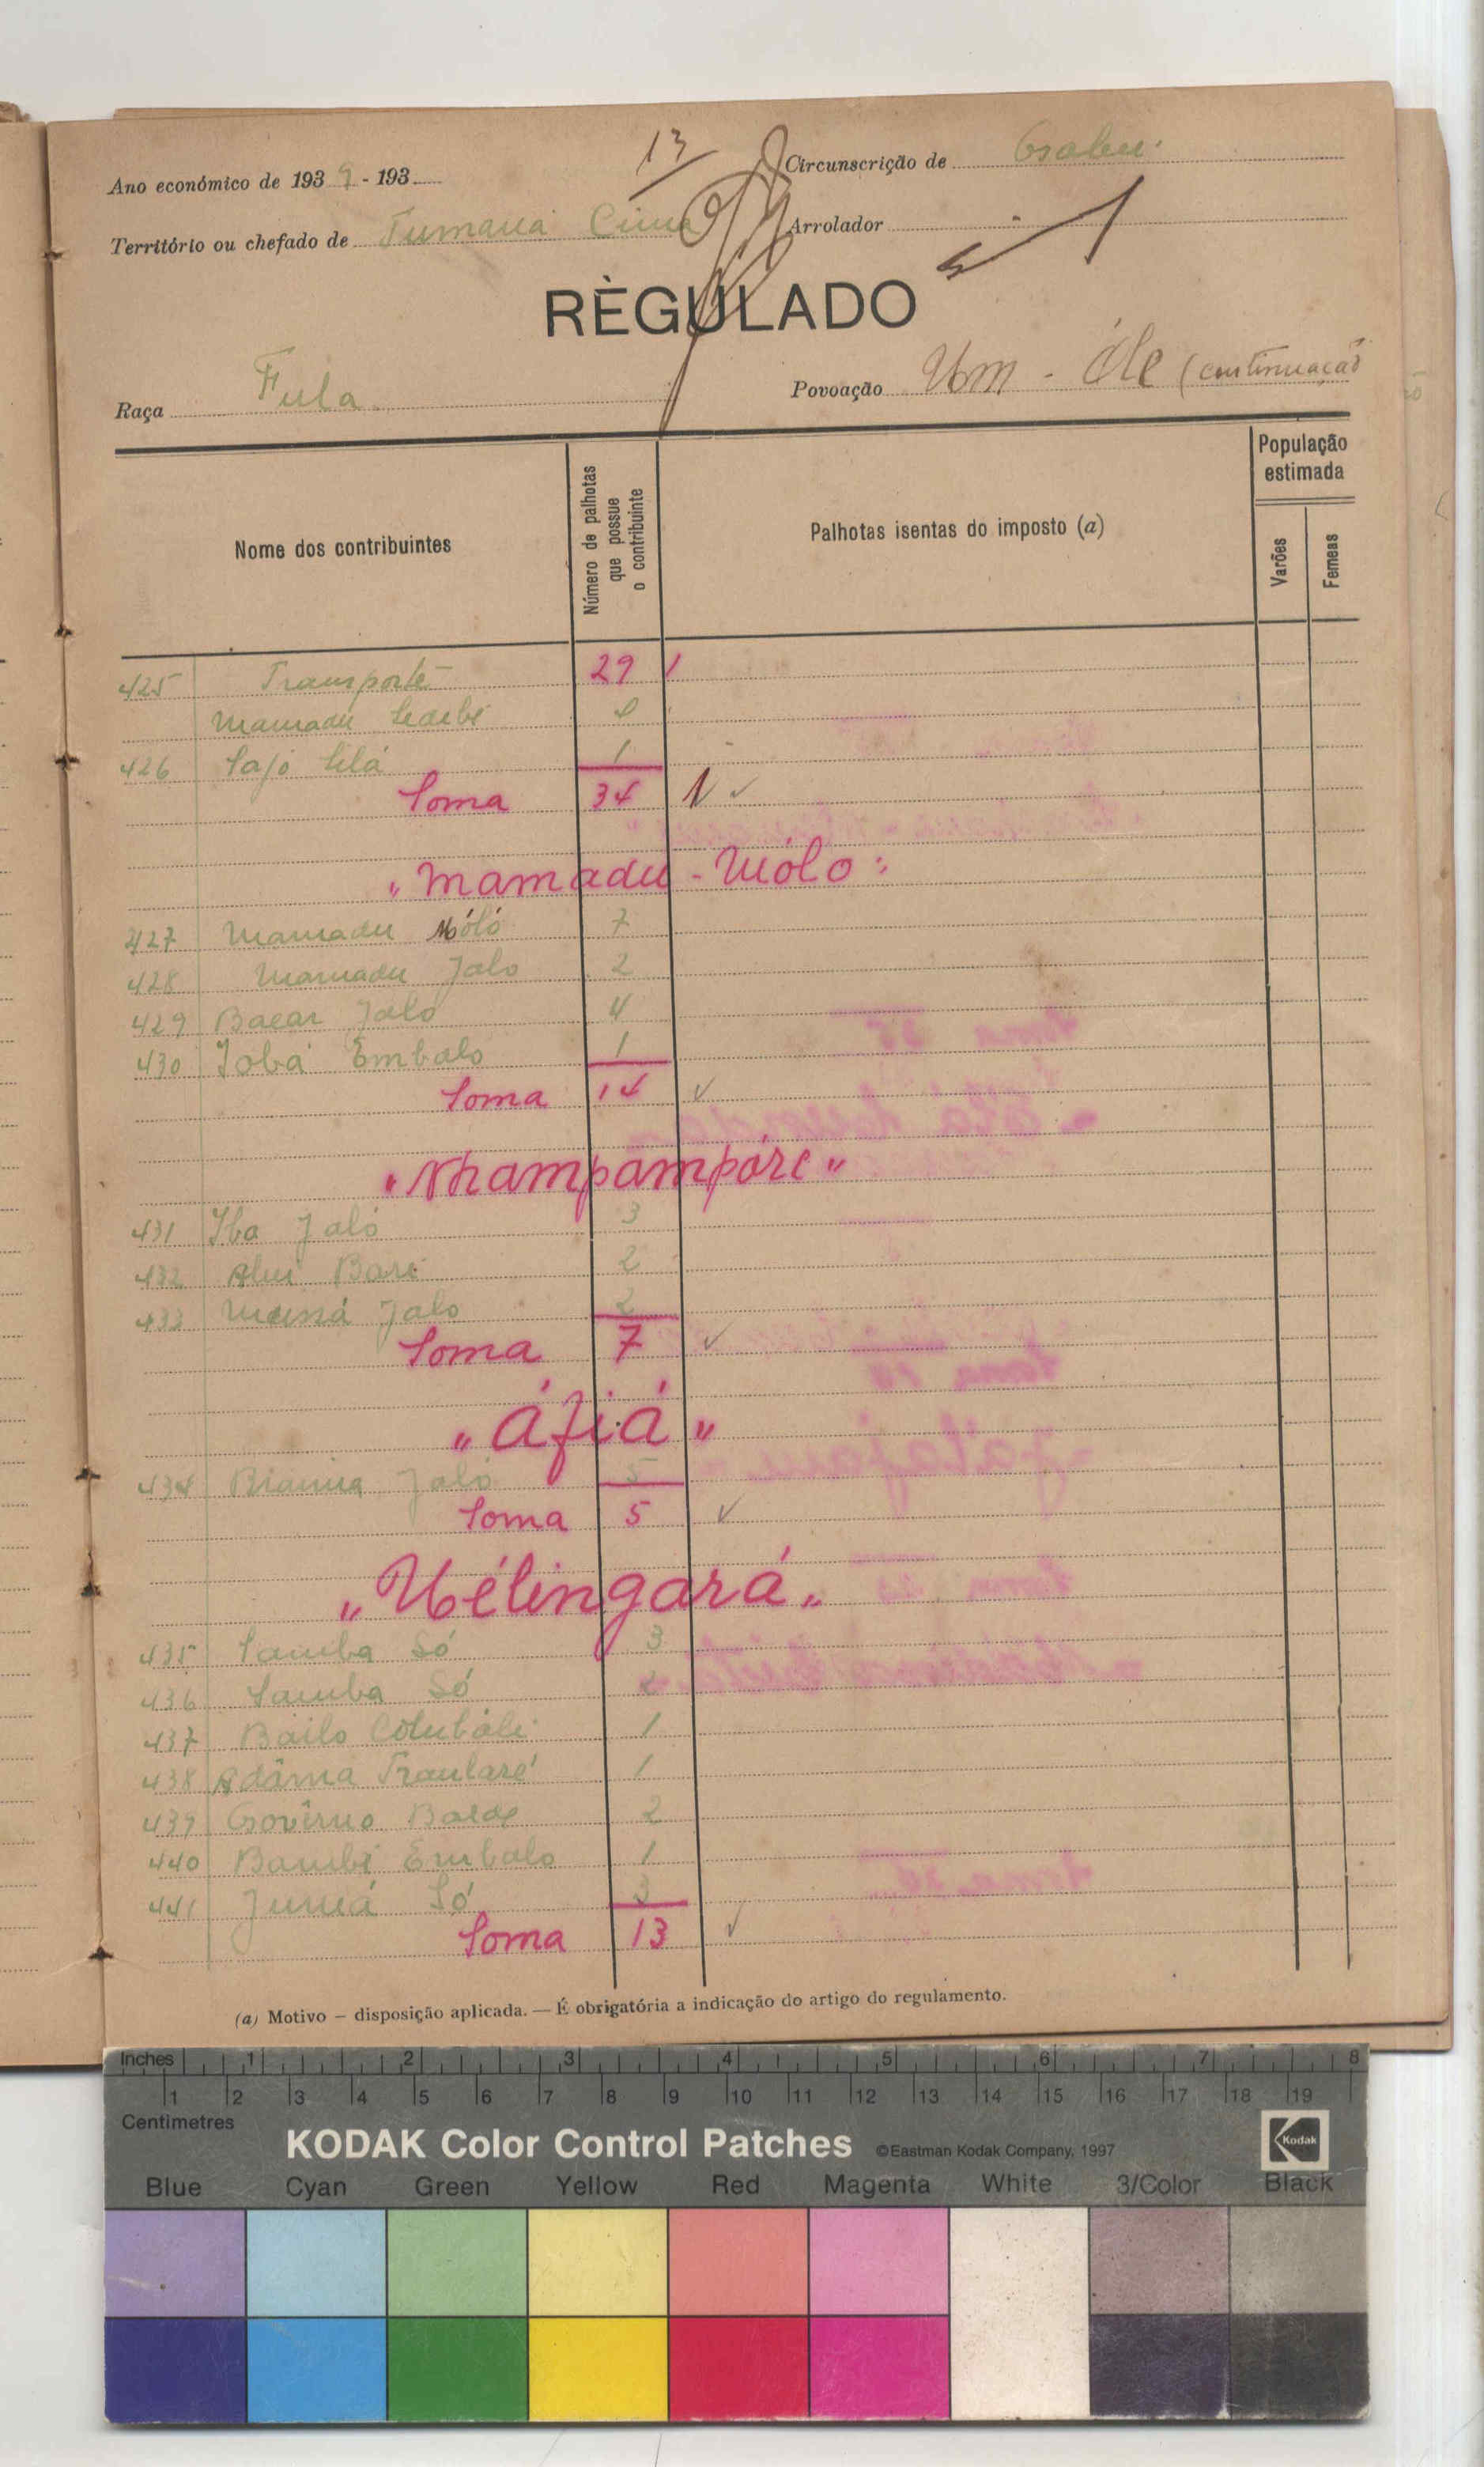 13
Ano económico de 193 9 - 193
Circunscrição de Gabu.
Território ou chefado de Tumaná Cima
Arrolador
RÈGULADO
Raça Fula
Povoação Um - Óle (continuação
Nome dos contribuintes
Número de palhotas que possue o contribuinte
Palhotas isentas do imposto (a)
População estimada
Varões
Femeas
425 Transporte 29 1
Mamadu
426 Sajo Silá 1
Soma 34 1 ✓
"Mamadu - Mólo"
427 Mamadu Móló 7
428 Mamadu Jalo 2
429 Bacar Jaló 4
430 Iobá Embalo 1
Soma 14 ✓
"Nhampampóre"
431 Iba Jaló 3
432 Aliu Bari 2
433 Jalo 2
Soma 7 ✓
"Áfiá"
434 Jaló 5
Soma 5 ✓
"Uélingará"
435 Samba Só 3
436 Samba Só 2
437 Bailo Colubáli 1
438 Adâma Traulare' 1
439 Govêrno Balde 2
440 Bambi Embalo 1
441 Jumá Só 3
Soma 13 ✓
(a) Motivo — disposição aplicada. — É obrigatória a indicação do artigo do regulamento.
Inches 1 2 3 4 5 6 7 8
1 2 3 4 5 6 7 8 9 10 11 12 13 14 15 16 17 18 19
Centimetres
KODAK Color Control Patches ©Eastman Kodak Company, 1997 Kodak
Blue Cyan Green Yellow Red Magenta White 3/Color Black